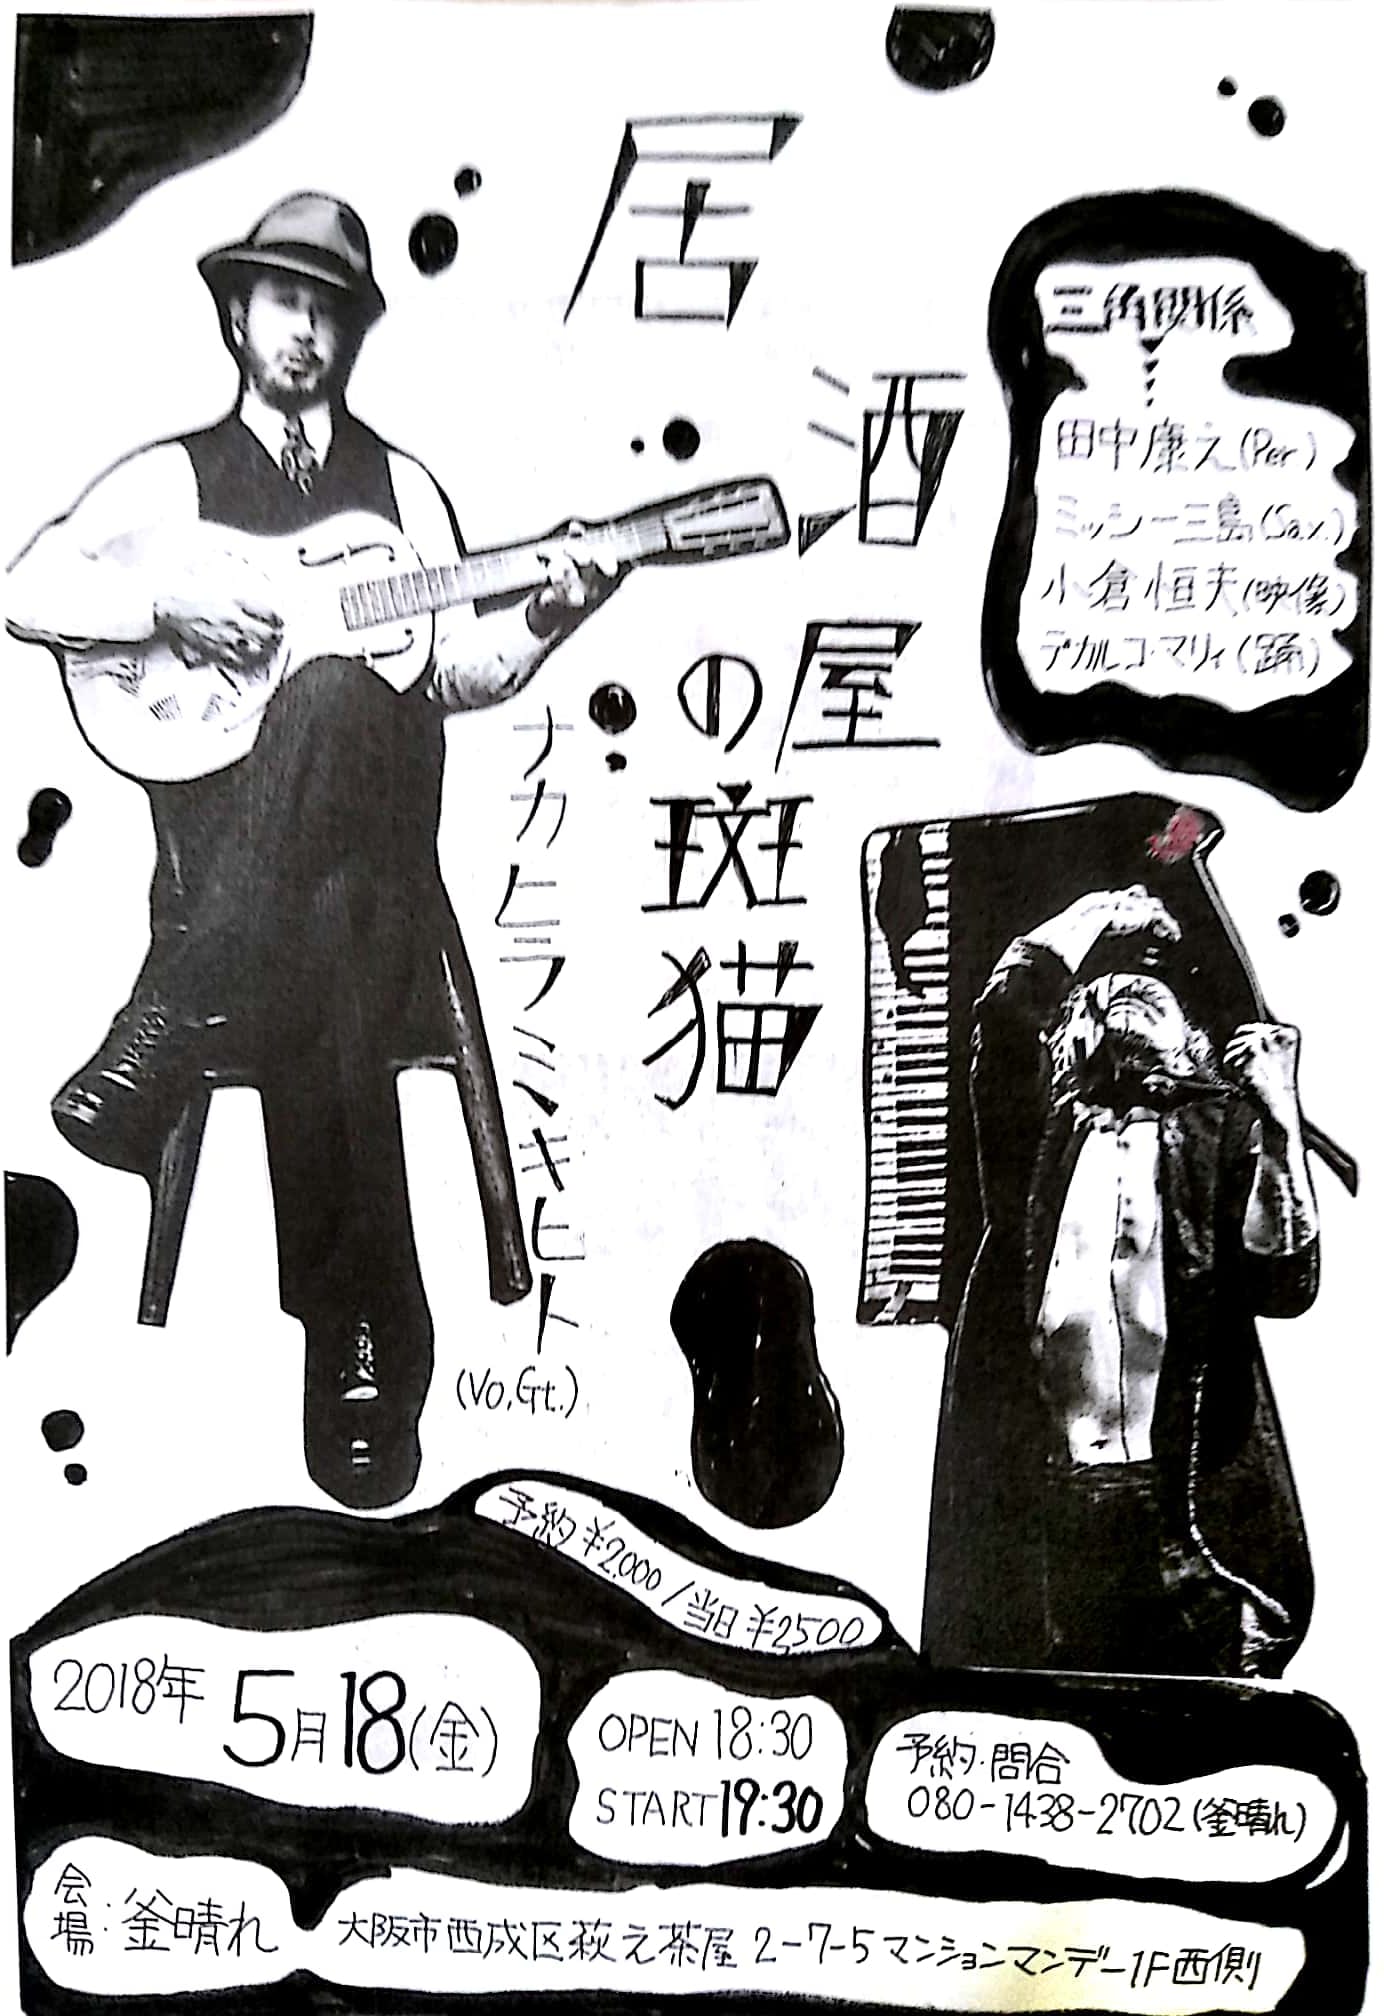 居酒屋の斑猫
ナカヒラミキヒト
(Vo,Gt.)
三角関係
田中康之(Per.)
ミッシー三島(Sax.)
小倉恒夫(映像)
デカルコ・マリィ(踊)
予約¥2.000/当日¥2500
2018年5月18(金)
OPEN 18:30
START 19:30
予約・問合
080-1438-2702(釜晴れ)
会場:釜晴れ
大阪市西成区萩之茶屋2-7-5マンションマンデー1F西側